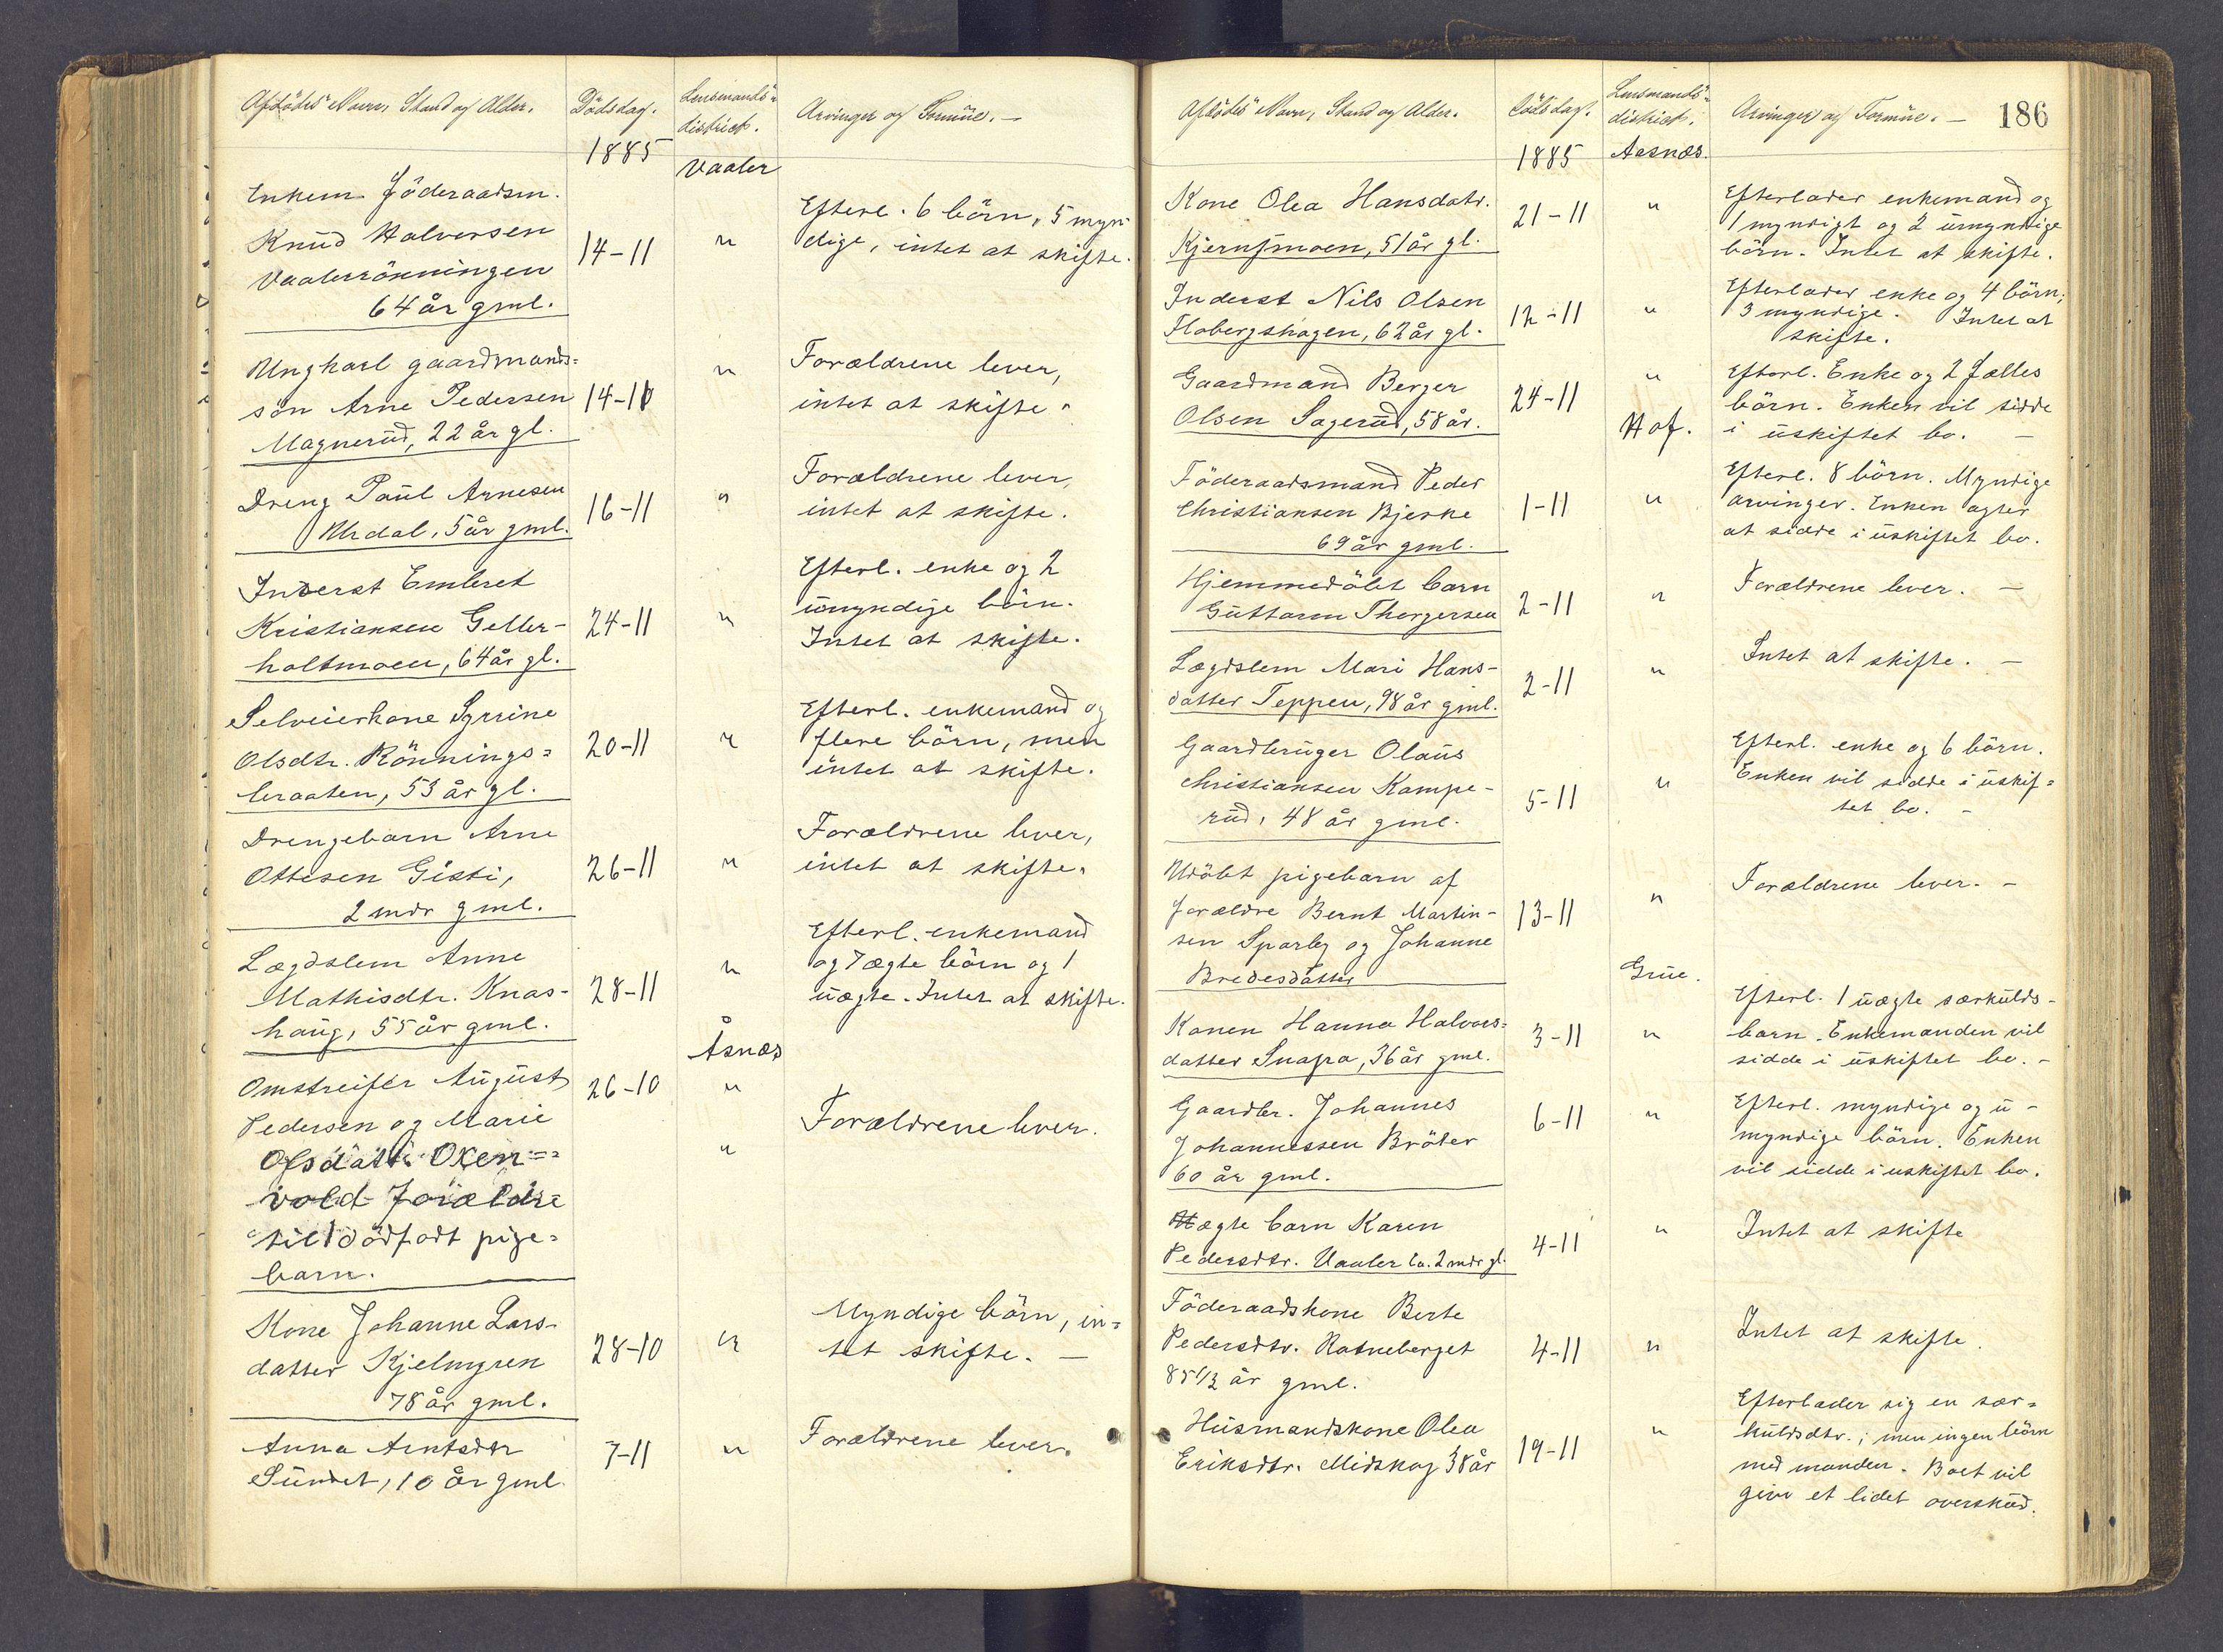 Afdødes Navn, Stand og Alder.
Dödsdag.
Lensmands-
district.
Arvinger og Formue. —
1885
Vaaler
Enkem. Föderaadsm.
Knud Halvorsen
Vaalerrönningen
64 år gml.
14-11
"
Efterl. 6 börn, 5 myn-
dige, intet at skifte.
Ungkarl gaardmands=
sön Arne Pedersen
Magnerud, 22 år gl.
14-11
"
Forældrene lever,
intet at skifte.
Dreng Paul Arnesen
Urdal, 5 år gml.
16-11
"
Forældrene lever,
intet at skifte.
Inderst Embret
Kristiansen Geller-
holtmoen, 64 år gl.
24-11
"
Efterl. enke og 2
umyndige börn.
Intet at skifte.
Selveierkone Syrine
Olsdtr. Rönnings=
braaten, 53 år gl.
20-11
"
Efterl. enkemand og
flere börn, men
intet at skifte.
Drengebarn Arne
Ottesen Gisti,
2 mdr gml.
26-11
"
Forældrene lever,
intet at skifte.
Lægdslem Anne
Mathisdtr. Knas-
haug, 55 år gml.
28-11
"
Efterl. enkemand
og 7 ægte börn og 1
uægte. Intet at skifte.
Åsnæs
Omstreifer August
Pedersen og Marie
Olsdatt. Oxen=
vold forældre
til dödfödt pige=
barn.
26-10
"
"
Forældrene lever.
Kone Johanne Lars-
datter Kjelmyren
78 år gml.
28-10
"
Myndige börn, in=
tet skifte. —
Anna Arntsdtr
Sundet, 10 år gml.
7-11
"
Forældrene lever.
Afdødes Navn, Stand og Alder.
Dödsdag.
Lensmands-
district.
Arvinger og Formue. —
186
1885
Aasnæs.
Kone Olea Hansdatr.
Kjernsmoen, 51 år gl.
21-11
"
Efterlader enkemand og
1 myndigt og 2 umyndige
börn. Intet at skifte.
Inderst Nils Olsen
Flobergshagen, 62 år gl.
12-11
"
Efterlader enke og 4 börn,
3 myndige. Intet at
skifte.
Gaardmand Berger
Olsen Sagerud, 58 år.
24-11
"
Efterl. Enke og 2 fælles
börn. Enken vil sidde
i uskiftet bo. —
Hof.
Föderaadsmand Peder
Christiansen Bjerke
69 år gml.
1-11
"
Efterl. 8 börn. Myndige
arvinger. Enken agter
at sidde i uskiftet bo.
Hjemmedöbt barn
Guttorm Thorgersen
2-11
"
Forældrene lever. —
Lægdslem Mari Hans-
datter Teppen, 98 år gml.
2-11
"
Intet at skifte. —
Gaardbruger Olaus
Christiansen Kampe-
rud, 48 år gml.
5-11
"
Efterl. enke og 6 börn.
Enken vil sidde i uskif=
tet bo. -
Udöbt pigebarn af
forældre Bernt Martin-
sen Sparby og Johanne
Bredesdatter
13-11
"
Forældrene lever. -
Grue.
Konen Hanna Halvors=
datter Snapa, 36 år gml.
3-11
"
Efterl. 1 uægte særkulds-
barn. Enkemanden vil
sidde i uskiftet bo. -
Gaardbr. Johannes
Johannessen Bröter
60 år gml.
6-11
"
Efterl. myndige og u-
myndige börn. Enken
vil sidde i uskiftet bo.
Uægte barn Karen
Pedersdtr. Vaaler ca. 2 mdr gl.
4-11
"
Intet at skifte
Föderaadskone Berte
Pedersdtr. Rotneberget
85 1/2 år gml.
4-11
"
Intet at skifte.
Husmandskone Olea
Eriksdtr. Midskog 38 år
19-11
"
Efterlader sig en sær=
kuldsdtr.; men ingen börn
med manden. Boet vil
give et lidet overskud.